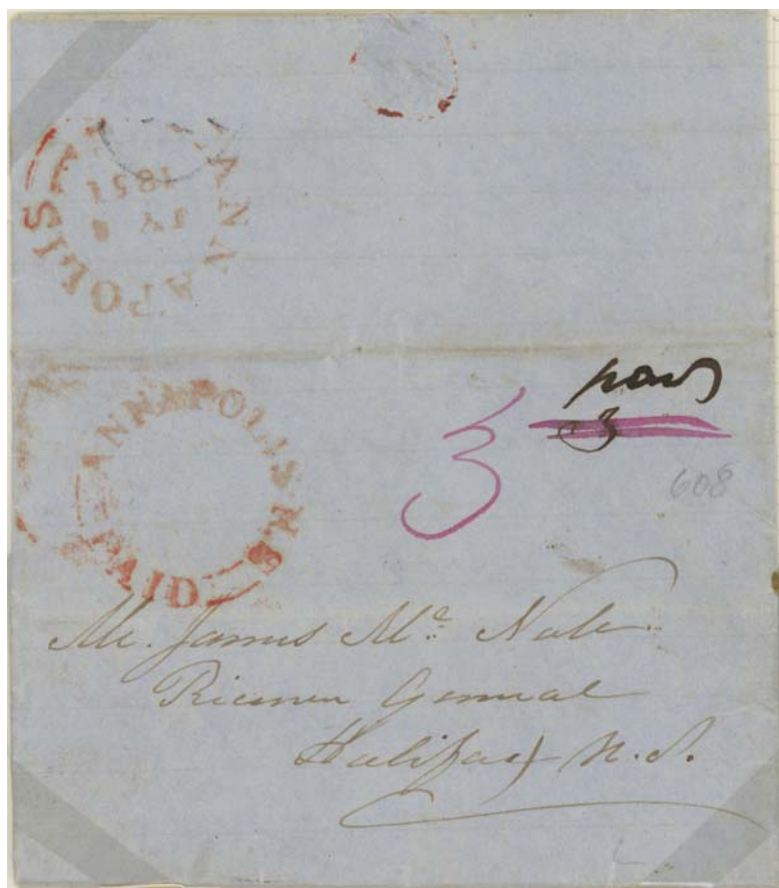 ANNAPOLIS
1851
ANNAPOLIS N.S.
PAID
paid
3
3
608
Mr. James Mc. Nab
Receiver General
Halifax N.S.